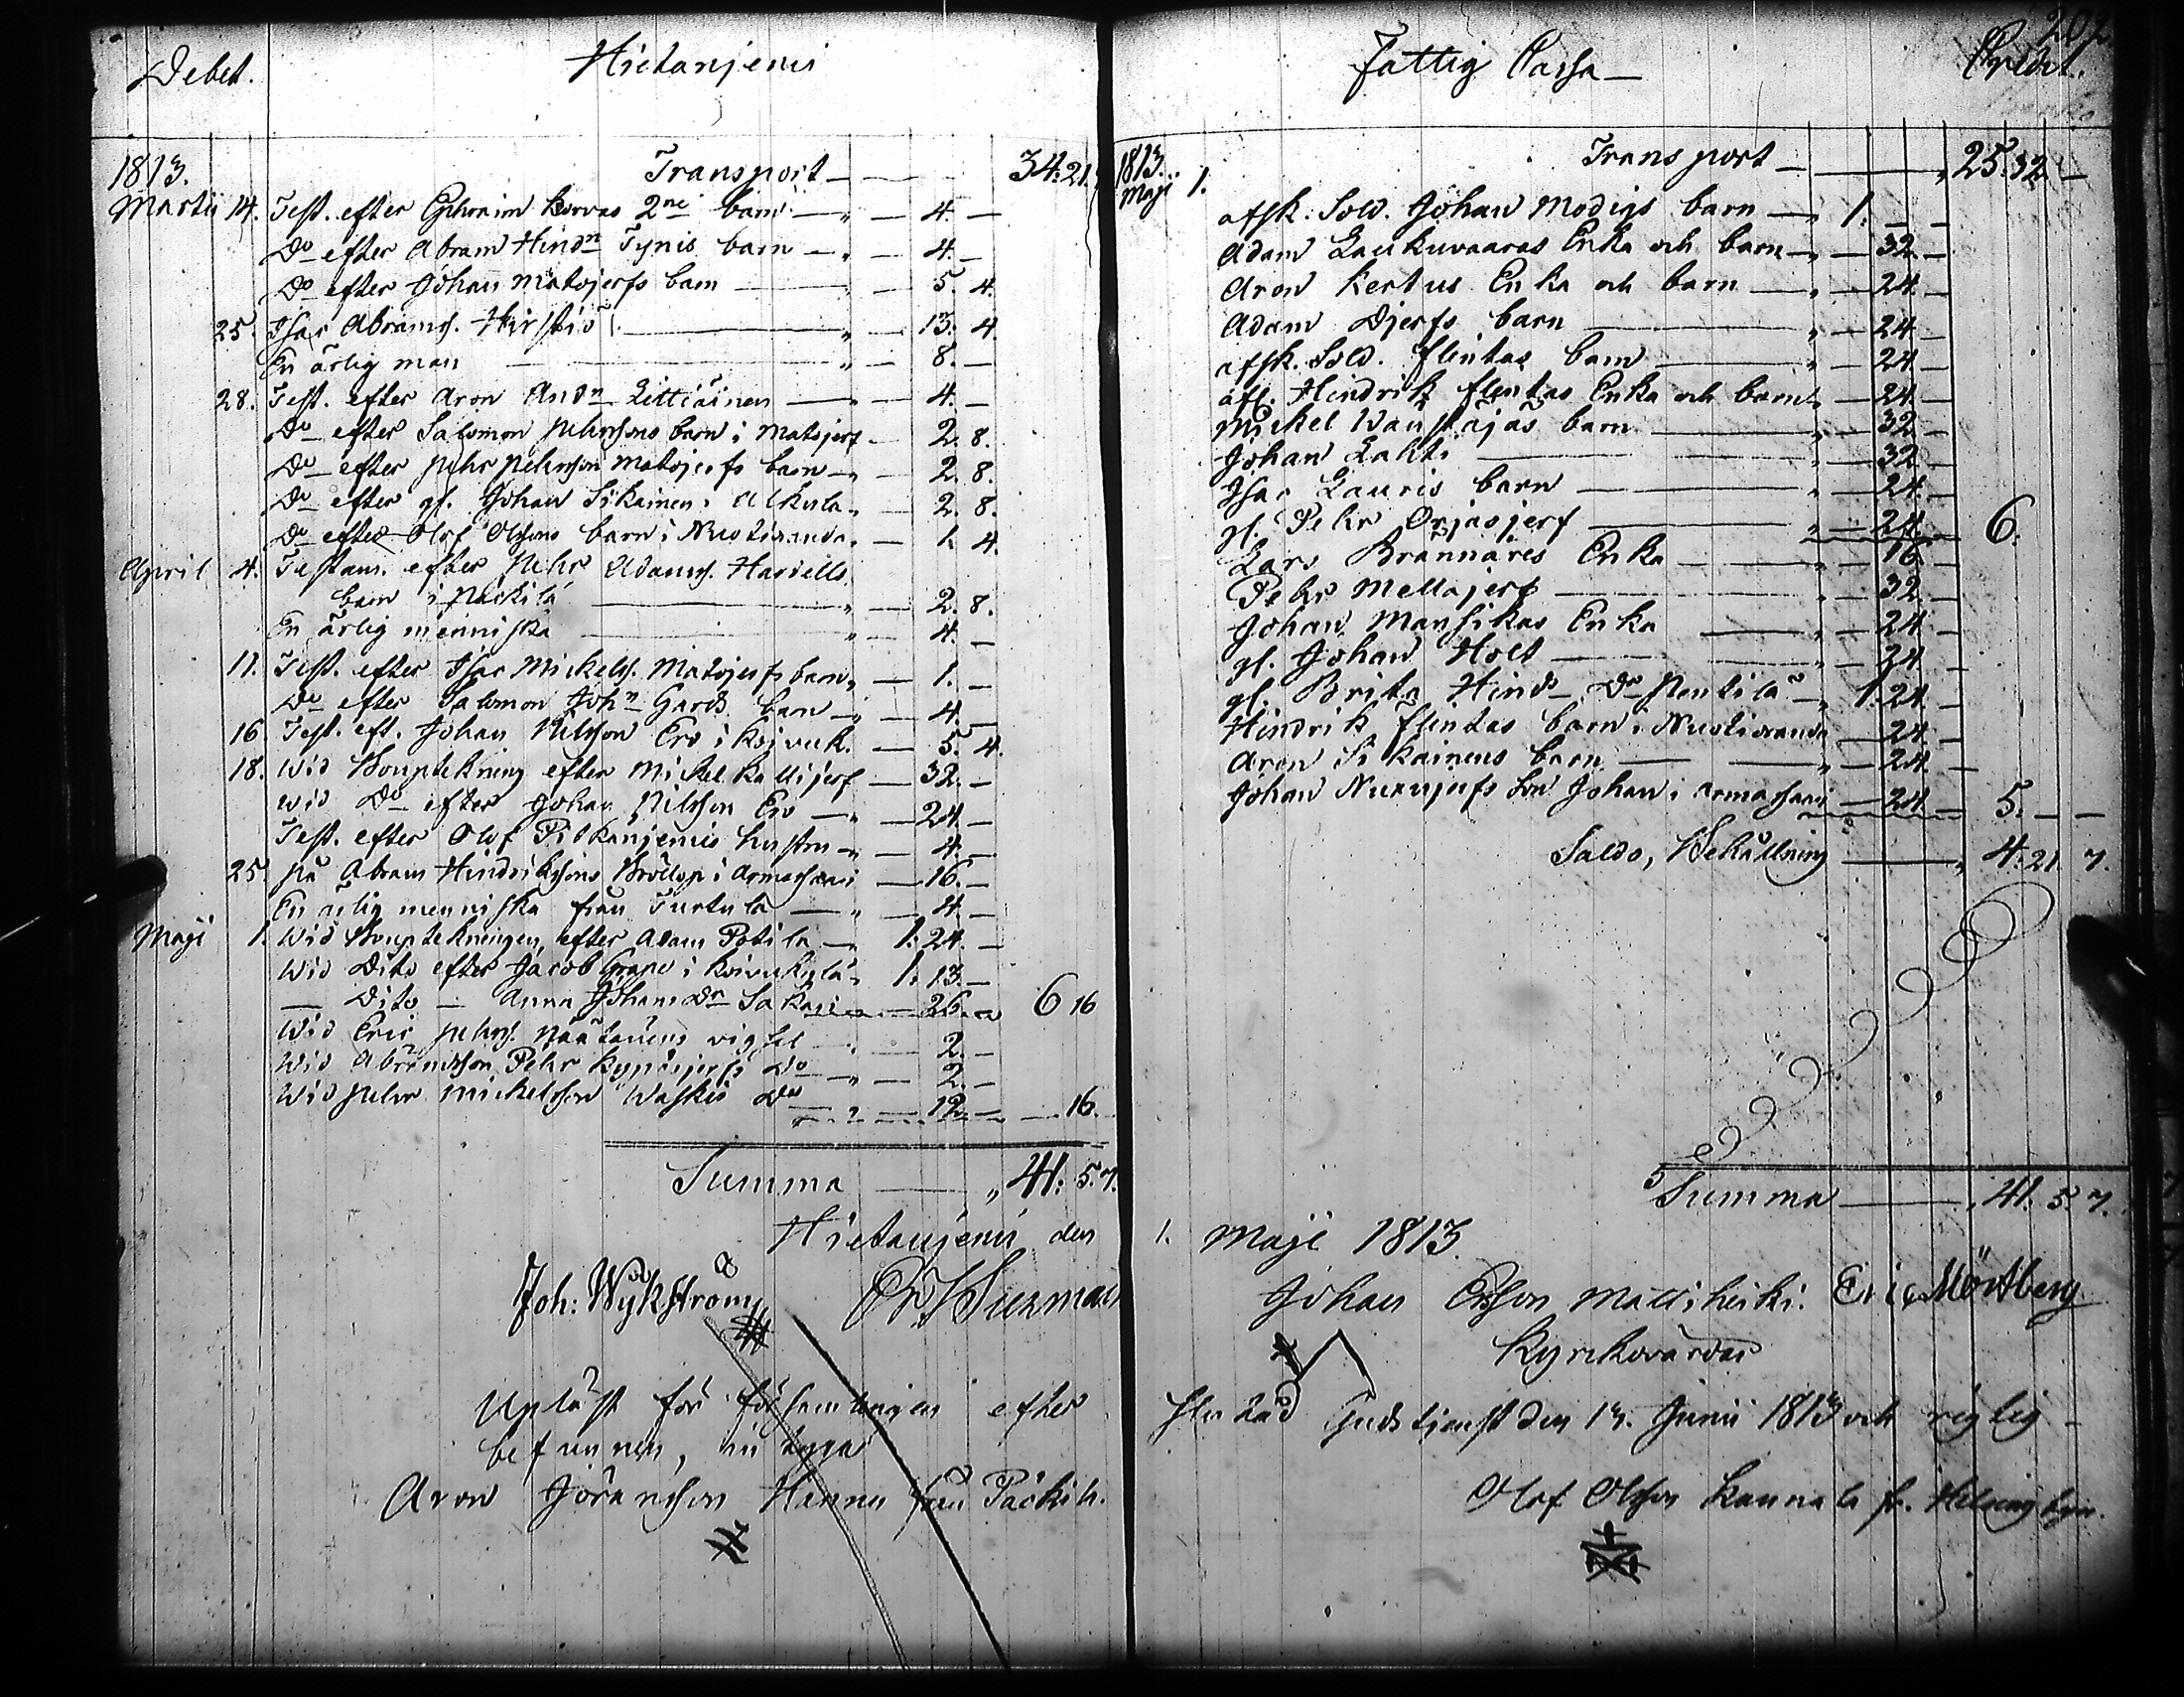 Debet. Hietanjemi
1813. Transport 34. 21.
Martii 14. Test. efter Ephraim Korvas 2ne barn 4. —
Do efter Abram Hindn Tynis barn 4. —
Do efter Johan Matojerfs barn 5. 4.
25. Isac Abramss. Hirstiö 13. 4.
En ärlig man 8. —
28. Test. efter Aron Andn Littiäinen 4. —
Do efter Salomon Pehrssons barn i Matojerf 2. 8.
Do efter Pehr Pehrsson Matojerfs barn 2. 8.
Do efter gl. Johan Sikainen i Alkula 2. 8.
Do efter Olof Olssons barn i Niistiranda 1. 4.
April 4. Testam. efter Pehr Adamss.
barn i Päckilä 2. 8.
En ärlig menniska 4. —
11. Test. efter Isac Mickelss. Matojerfs barn 1. —
Do efter Salomon John Gards barn 4. —
16. Test. eft. Johan Nilsson Ero i Koivuk. 5. 4.
18. Wid Bouptekning efter Mickel Kallijerf 32. —
Wid Do efter Johan Nilsson Ero 24. —
Test. efter Olof Pitkänjemis hustru 4. —
25. på Abram Hindrikssons Bröllop i Armassaari 16. —
En ärlig menniska från Turtula 4. —
Maji 1. Wid Bouptekningen efter Adam Potila 1. 24. —
Wid Dito efter Jacob Grape i Koivukylä 1. 13. —
— Dito — Anna Johansdr 26. — 6 16
Wid Eric Pehrss. vigsel 2. —
Wid Abramsson Pehr Do 2. —
Wid Pehr Mickelsson Do 12. — 16.
Summa 41. 5. 7.
Hietanjemi den
Joh: Wykström
Upläst för församlingen efter
befunnen, intyga
Aron Göransson Hannu från Päckilä.
202
Fattig Cassa Credit.
1813. Transport 25. 32 —
Maji 1. afsk. Sold. Johan Modigs barn 1. — —
Adam Laukuvaaras Enka och barn 32. —
Aron Kertus Enka och barn 24. —
Adam Djerfs barn 24. —
afsk. Sold. Flintas barn 24 —
afl. Hindrik Flintas Enka och barn 24. —
Mickel barn 32 —
Johan Lahti 32 —
Isac Lauris barn 24. —
gl. Pehr Orjasjerf 24. — 6.
Lars Brännäres Enka 16 —
Pehr Mellajerf 32. —
Johan Mansikas Enka 24 —
gl. Johan Holt 24 —
gl. Brita Hinds Dr Pentilä 1. 24. —
Hindrik Flintas barn i Niistiranda 24. —
Aron Sikainens barn 24. —
Johan son Johan i Armassaari 24 — 5. — —
Saldo, Behållning 4. 21. 7.
Summa 41. 5. 7.
1. Maji 1813.
Johan Ersson Eric Mörtberg
Kyrkovärdar
Gudstjenst den 13. Junii 1813 och rigtig
Olof Olsson Kannala fr. Helsingbyn.